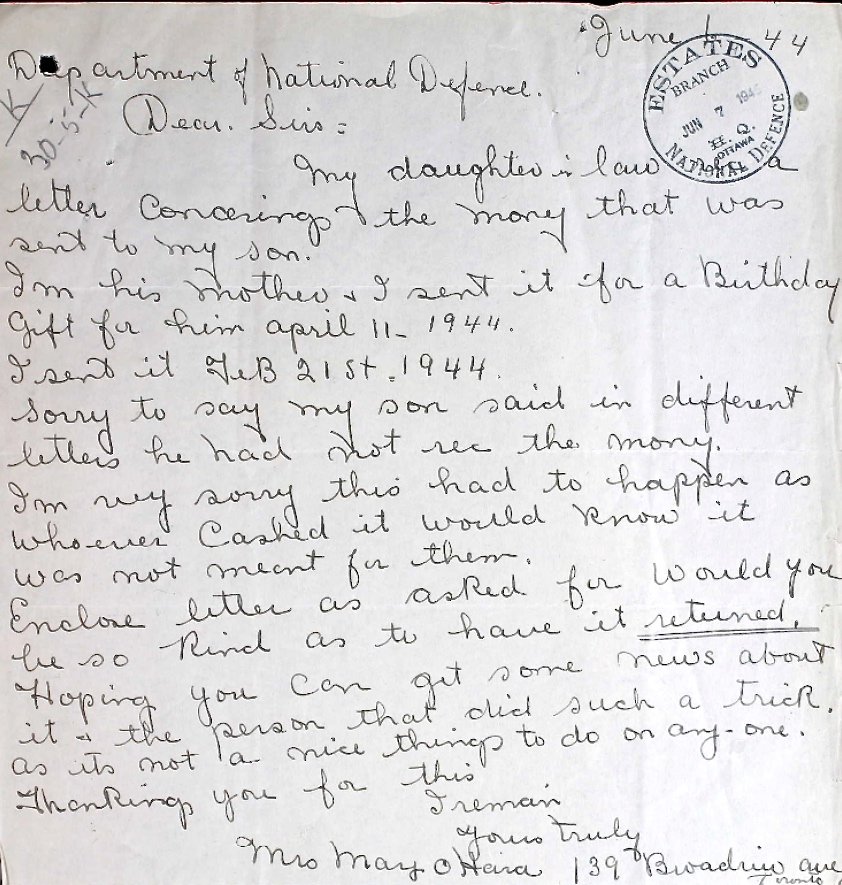 June 1 - 44
Department of National Defence.
ESTATES
BRANCH
JUN 7
H.Q.
OTTAWA
NATIONAL DEFENCE
K
30-5-K
Dear. Sirs =
My daughter in law a
letter Concerings the money that was
sent to my son.
I'm his mother & I sent it for a Birthday
Gift for him april 11 - 1944.
I sent it FeB 21st. 1944.
Sorry to say my son said in different
letters he had not rec the mony.
I'm very sorry this had to happen as
whoever Cashed it would know it
was not meant for them.
Enclose letter as asked for would you
be so kind as to have it returned.
Hoping you can get some news about
it & the person that did such a trick.
as its not a nice things to do on any-one.
Thankings you for this
I remain
Yours truly
Mrs May O'Hara 139 ave
Toronto